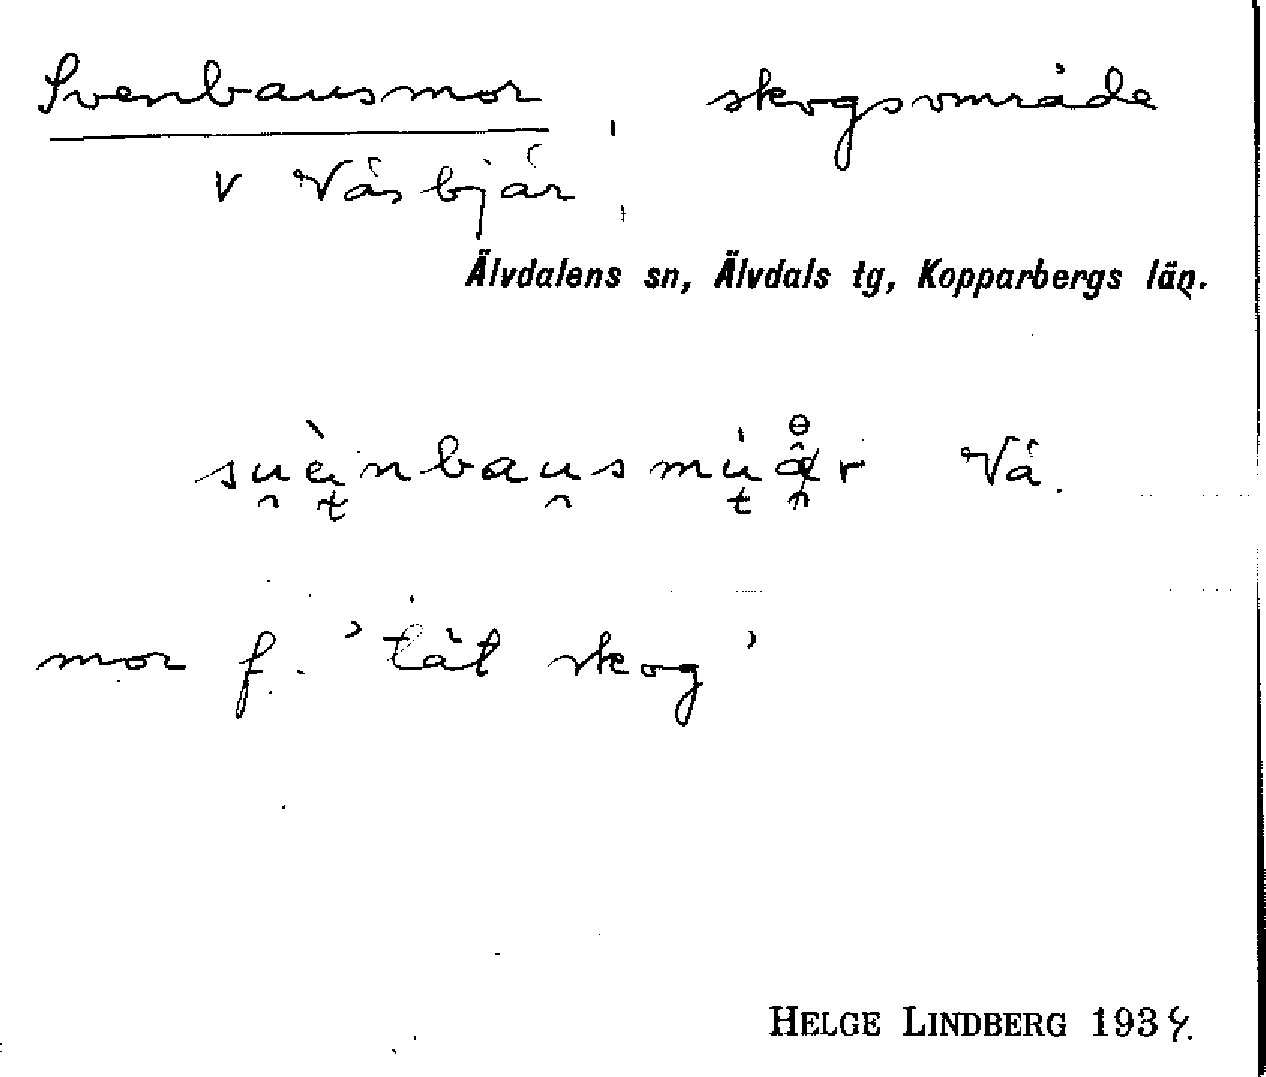 Svenbausmor, skogsområde
v Våsbjår,
Älvdalens sn, Älvdals tg, Kopparbergs län.
Vå.
mor f. 'tät skog'
HELGE LINDBERG 1934.